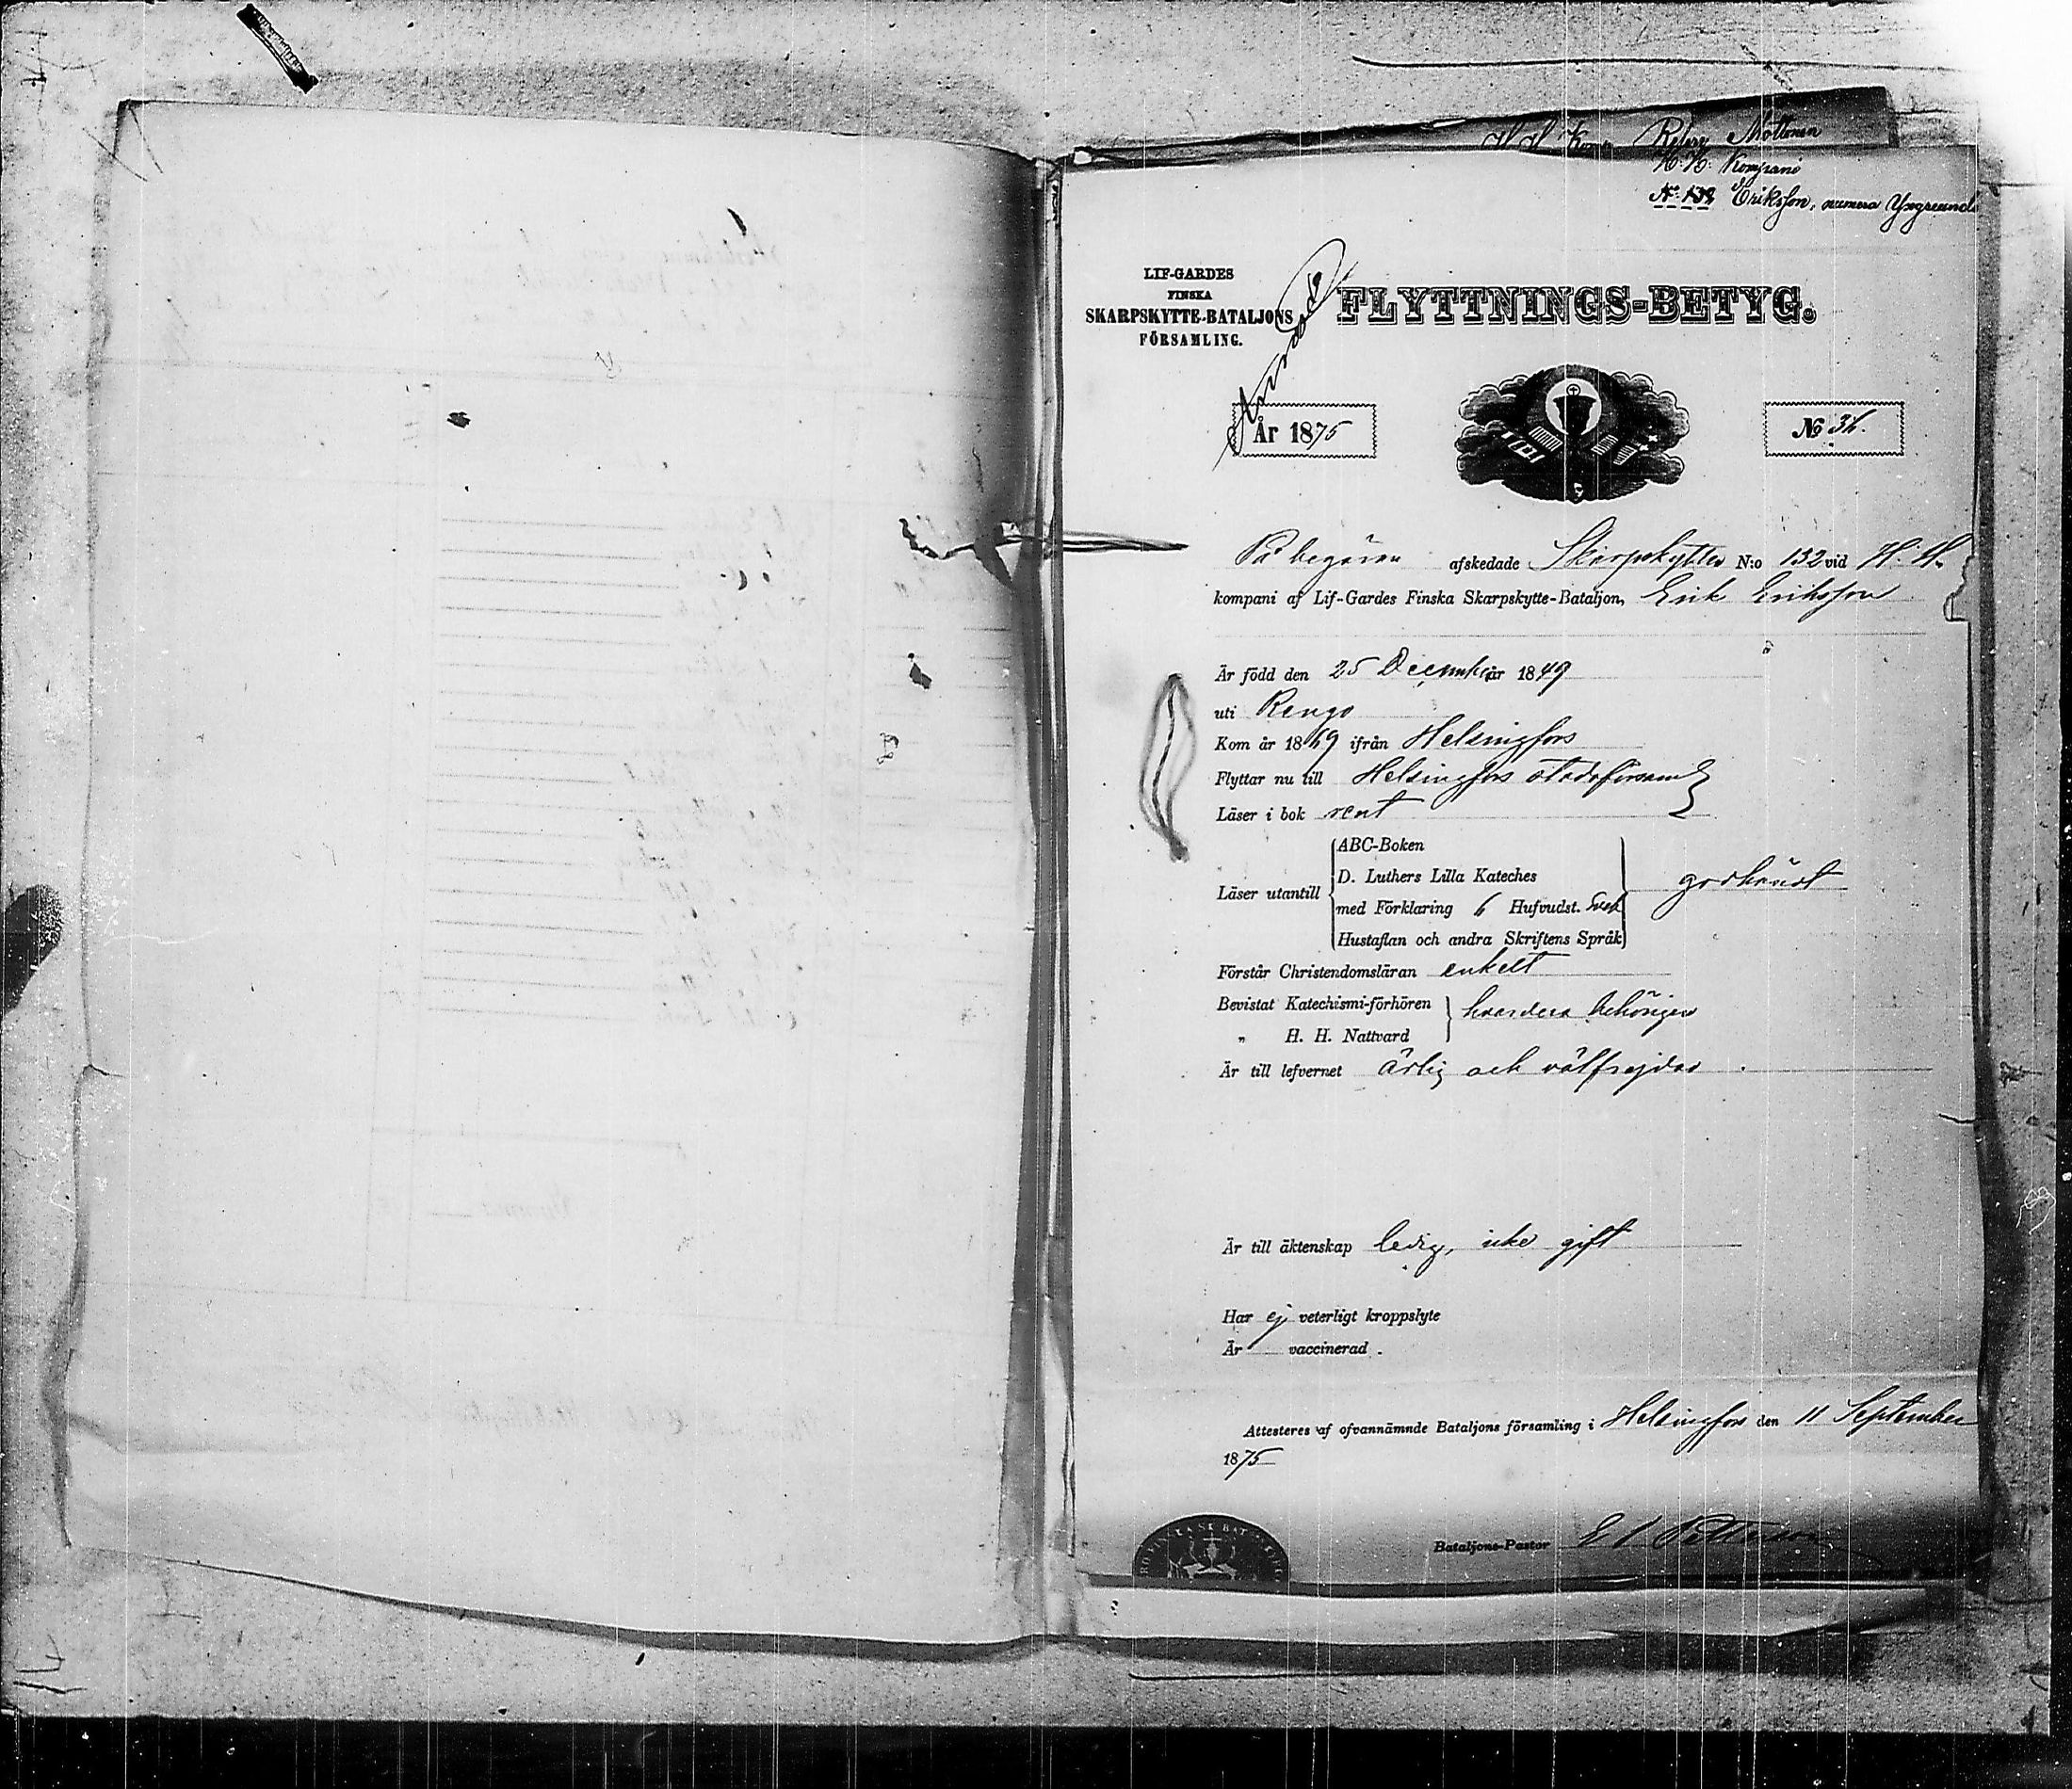 Möttönen
H. H. Kompani
No 132 Eriksson, numera
LIF-GARDES
FINSKA
SKARPSKYTTE-BATALJONS
FÖRSAMLING.
FLYTTNINGS-BETYG.
År 1875
No 34.
På begäran afskedade Skarpskytten N:o 132 vid H. H.
kompani af Lif-Gardes Finska Skarpskytte-Bataljon, Erik Eriksson
Är född den 25 December 1849
uti Rengo
Kom år 1869 ifrån Helsingfors
Flyttar nu till Helsingfors stadsförsaml
Läser i bok rent
Läser utantill
ABC-Boken
D. Luthers Lilla Kateches
med Förklaring 6 Hufvudst. Sveb
Hustaflan och andra Skriftens Språk
godkändt
Förstår Christendomsläran enkelt
Bevistat Katechismi-förhören
„ H. H. Nattvard
hvardera behörigen
Är till lefvernet ärlig och välfrejdad
Är till äktenskap ledig, icke gift
Har ej veterligt kroppslyte
Är vaccinerad.
Attesteres af ofvannämnde Bataljons församling i Helsingfors den 11 September
1875
Bataljons-Pastor